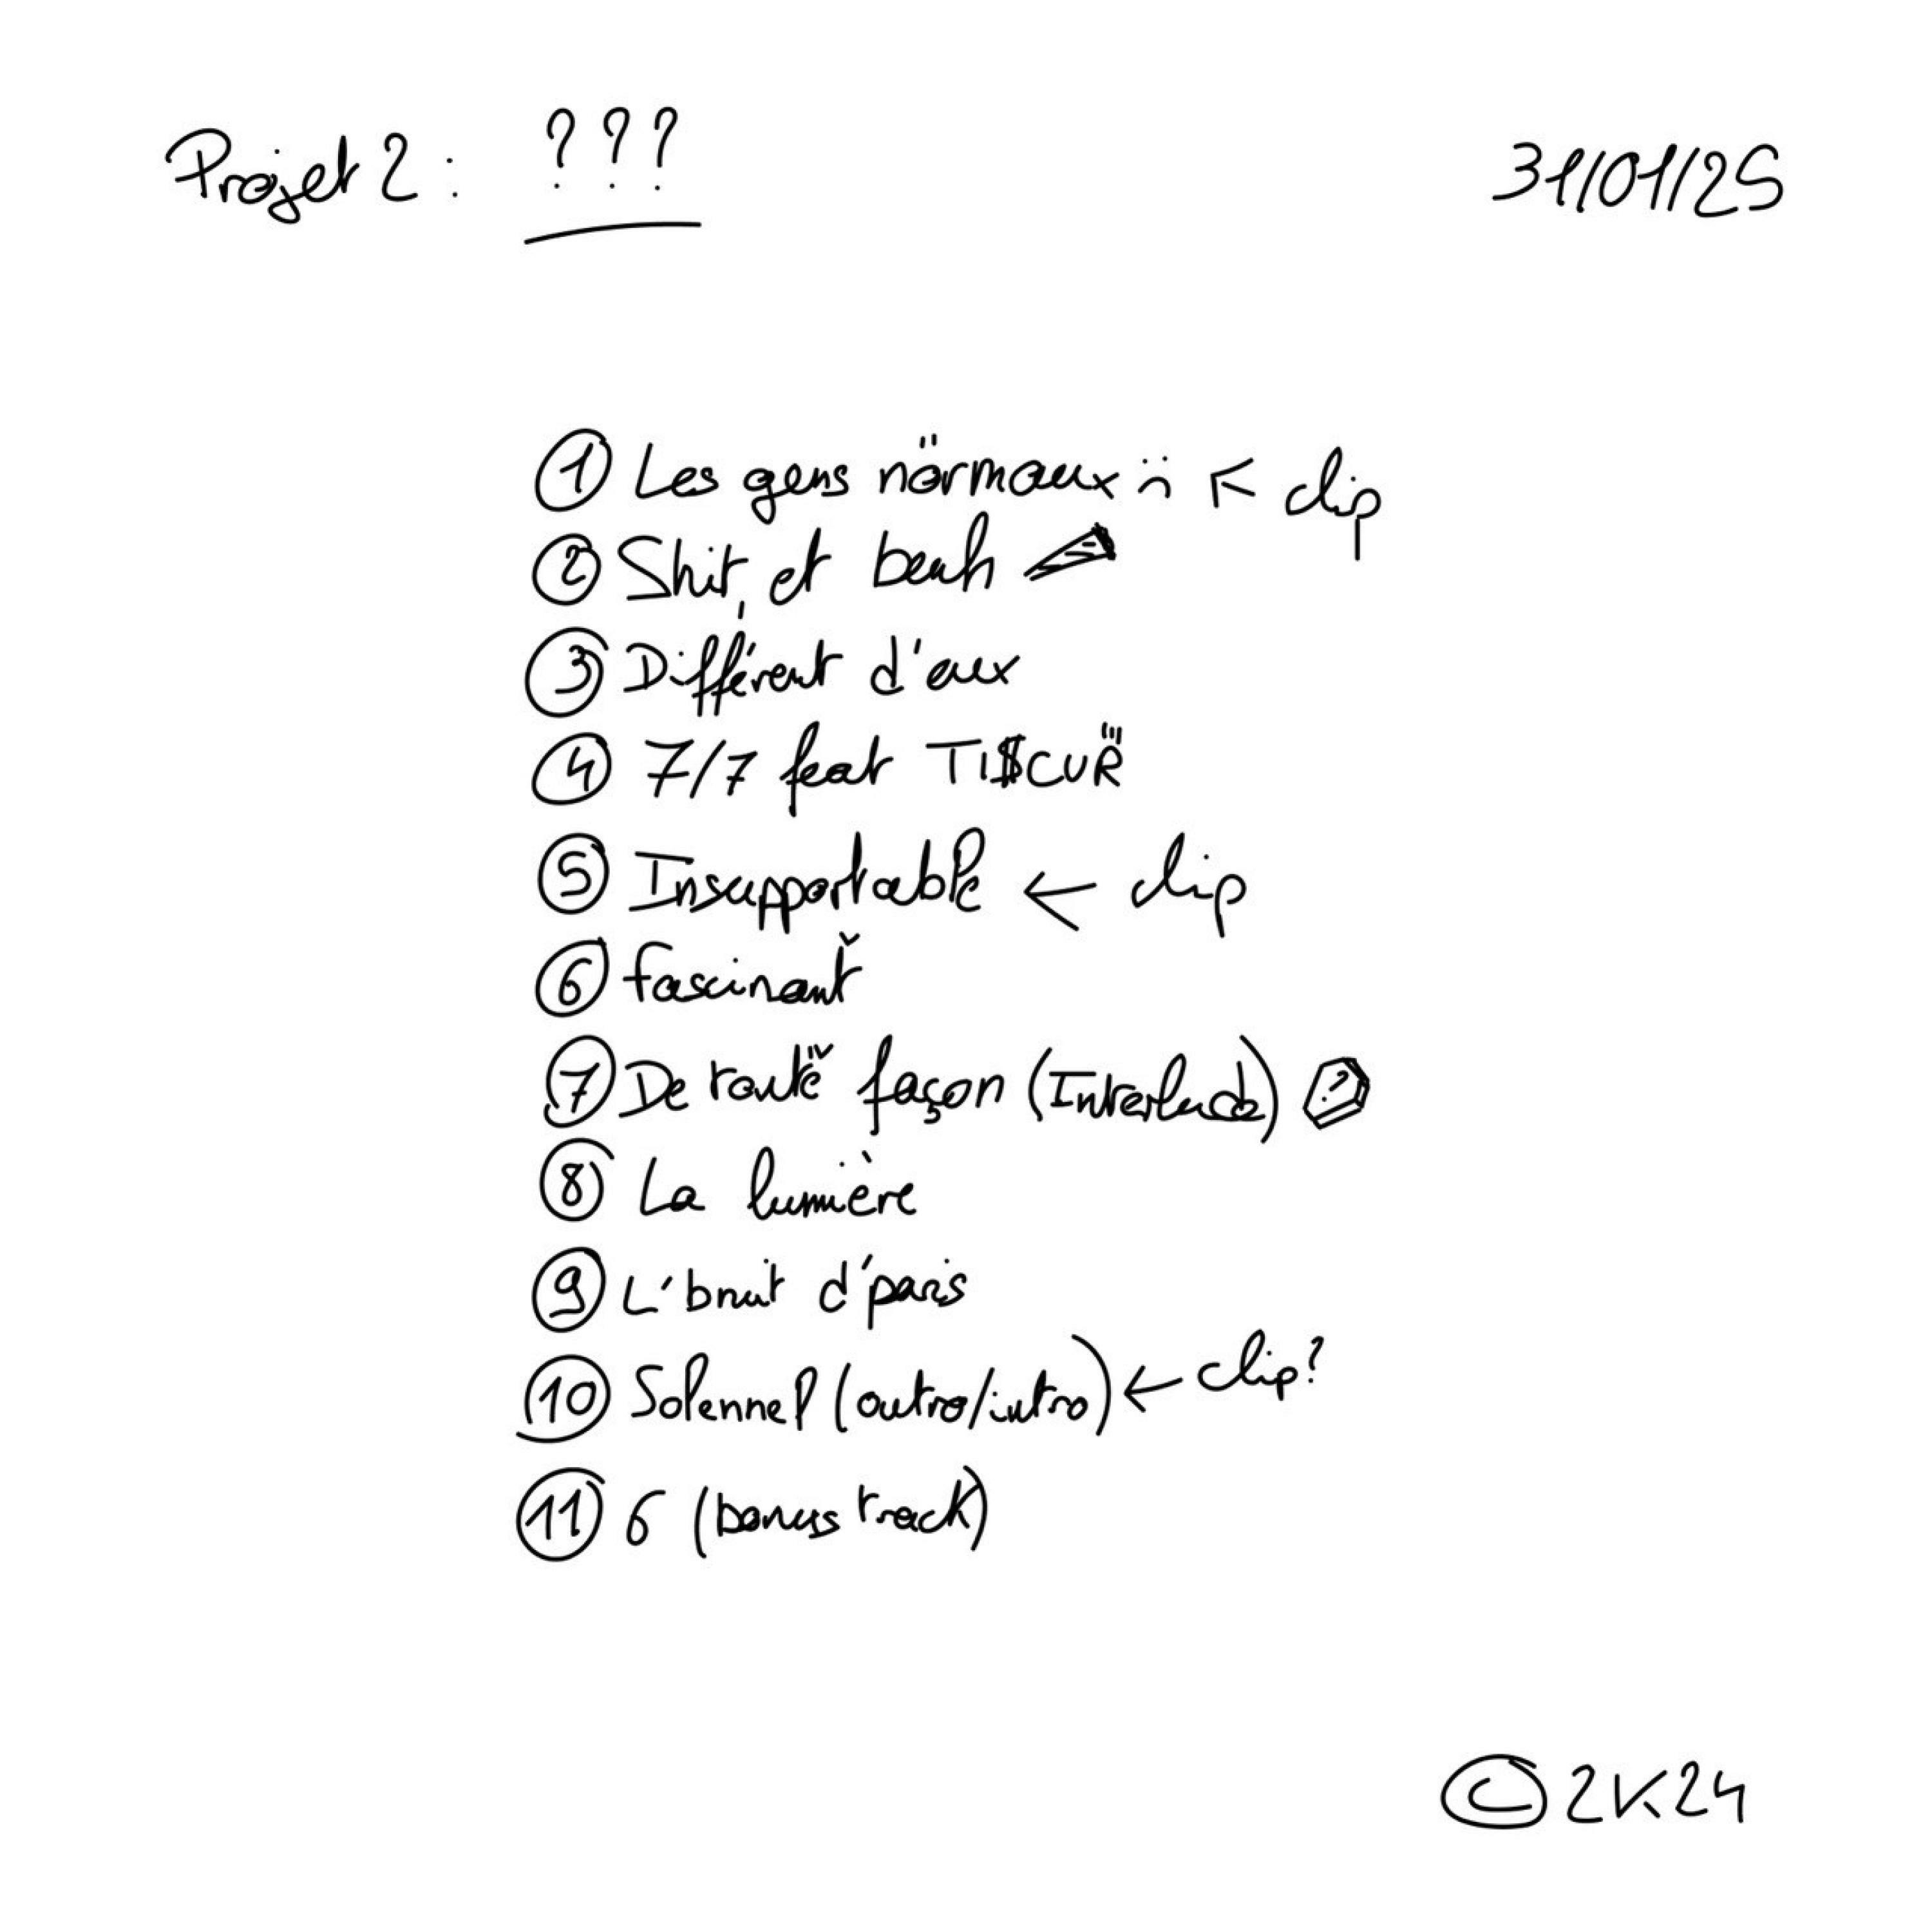 Projet 2 : ???
31/01/25
① Les gens nörmaux :( ← clip
② Shit, et beuh
③ Différent d'eux
④ 7/7 feat TI$CUR
⑤ Insupportable ← clip
⑥ fascinant
⑦ De toute façon (Interlude) ?
⑧ La lumière
⑨ L'bruit d'paris
⑩ Solennel (outro/intro) ← clip?
⑪ 6 (bonus track)
© 2K24